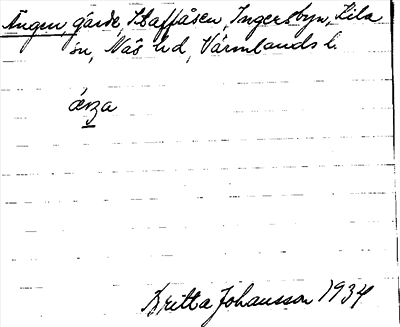 Ängen, gärde, Staffåsen, Ingersbyn, Kila
sn, Näs hd, Värmlands l.
Britta Johansson 1934